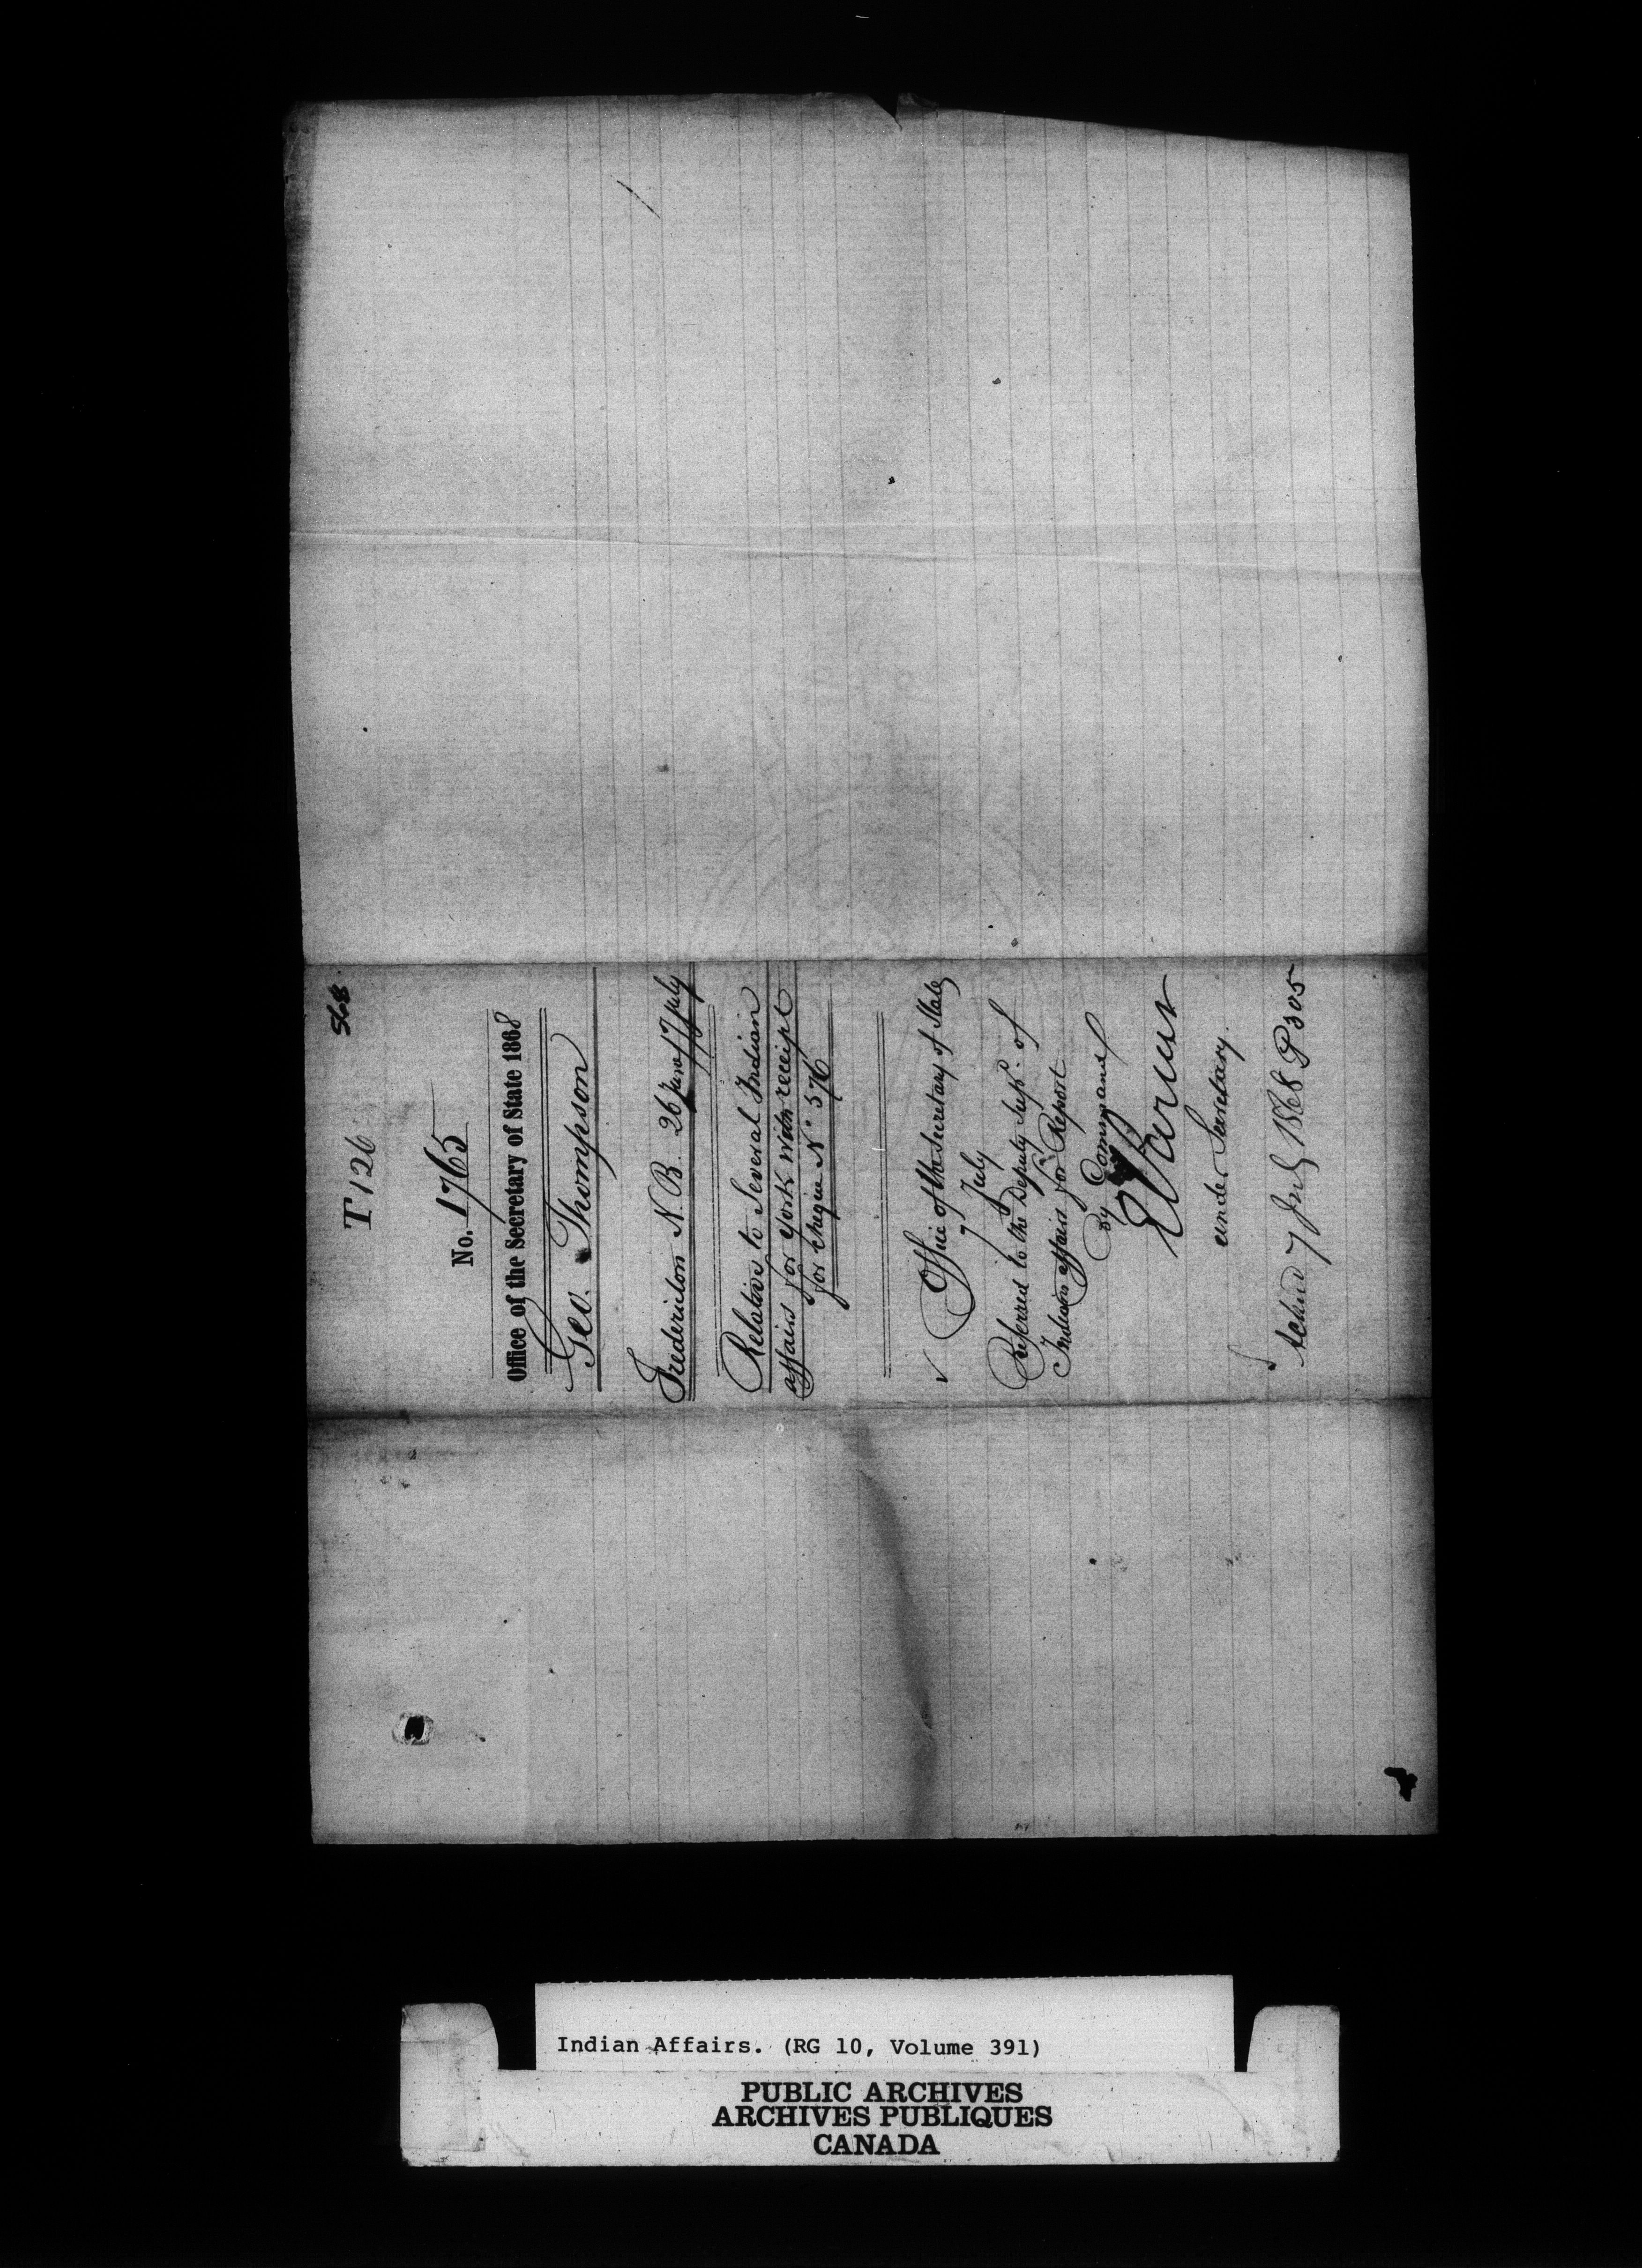 568
T 126
No. 1765
Office of the Secretary of State 1868
Geo. Thompson
Fredericton N.B. 26 June / 7 July
Relative to Several Indian
affairs for York with receipt
for cheque No 576
Office of the Secretary of State
7 July
Referred to the Deputy Supt. of
Indian affairs for Report
By Command
E Parent
under Secretary.
Ackd 7 July 1868 P 305
Indian Affairs. (RG 10, Volume 391)
PUBLIC ARCHIVES
ARCHIVES PUBLIQUES
CANADA